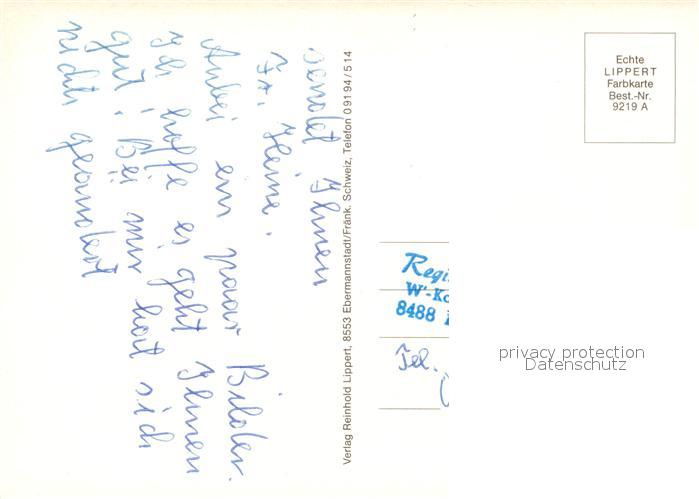 sendet Ihnen
Fr. Heine.
Anbei ein paar Bilder.
Ich hoffe es geht Ihnen
gut! Bei mir hat sich
nichts geändert
Verlag Reinhold Lippert, 8553 Ebermannstadt/Fränk. Schweiz, Telefon 09194/514
Echte
LIPPERT
Farbkarte
Best.-Nr.
9219 A
Regi
W'-Ko
8488
Tel.
privacy protection
Datenschutz